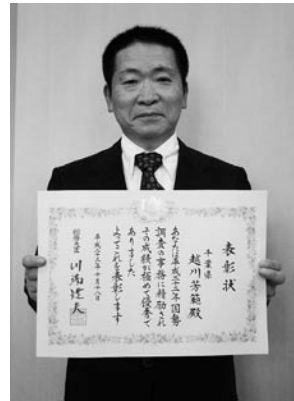 表彰状
千葉県
越川芳範殿
あなたは平成二十二年国勢
調査の事務に精励され
その成績が極めて優秀で
ありました
よってこれを表彰します
平成二十三年十月十八日
総務大臣 川端達夫